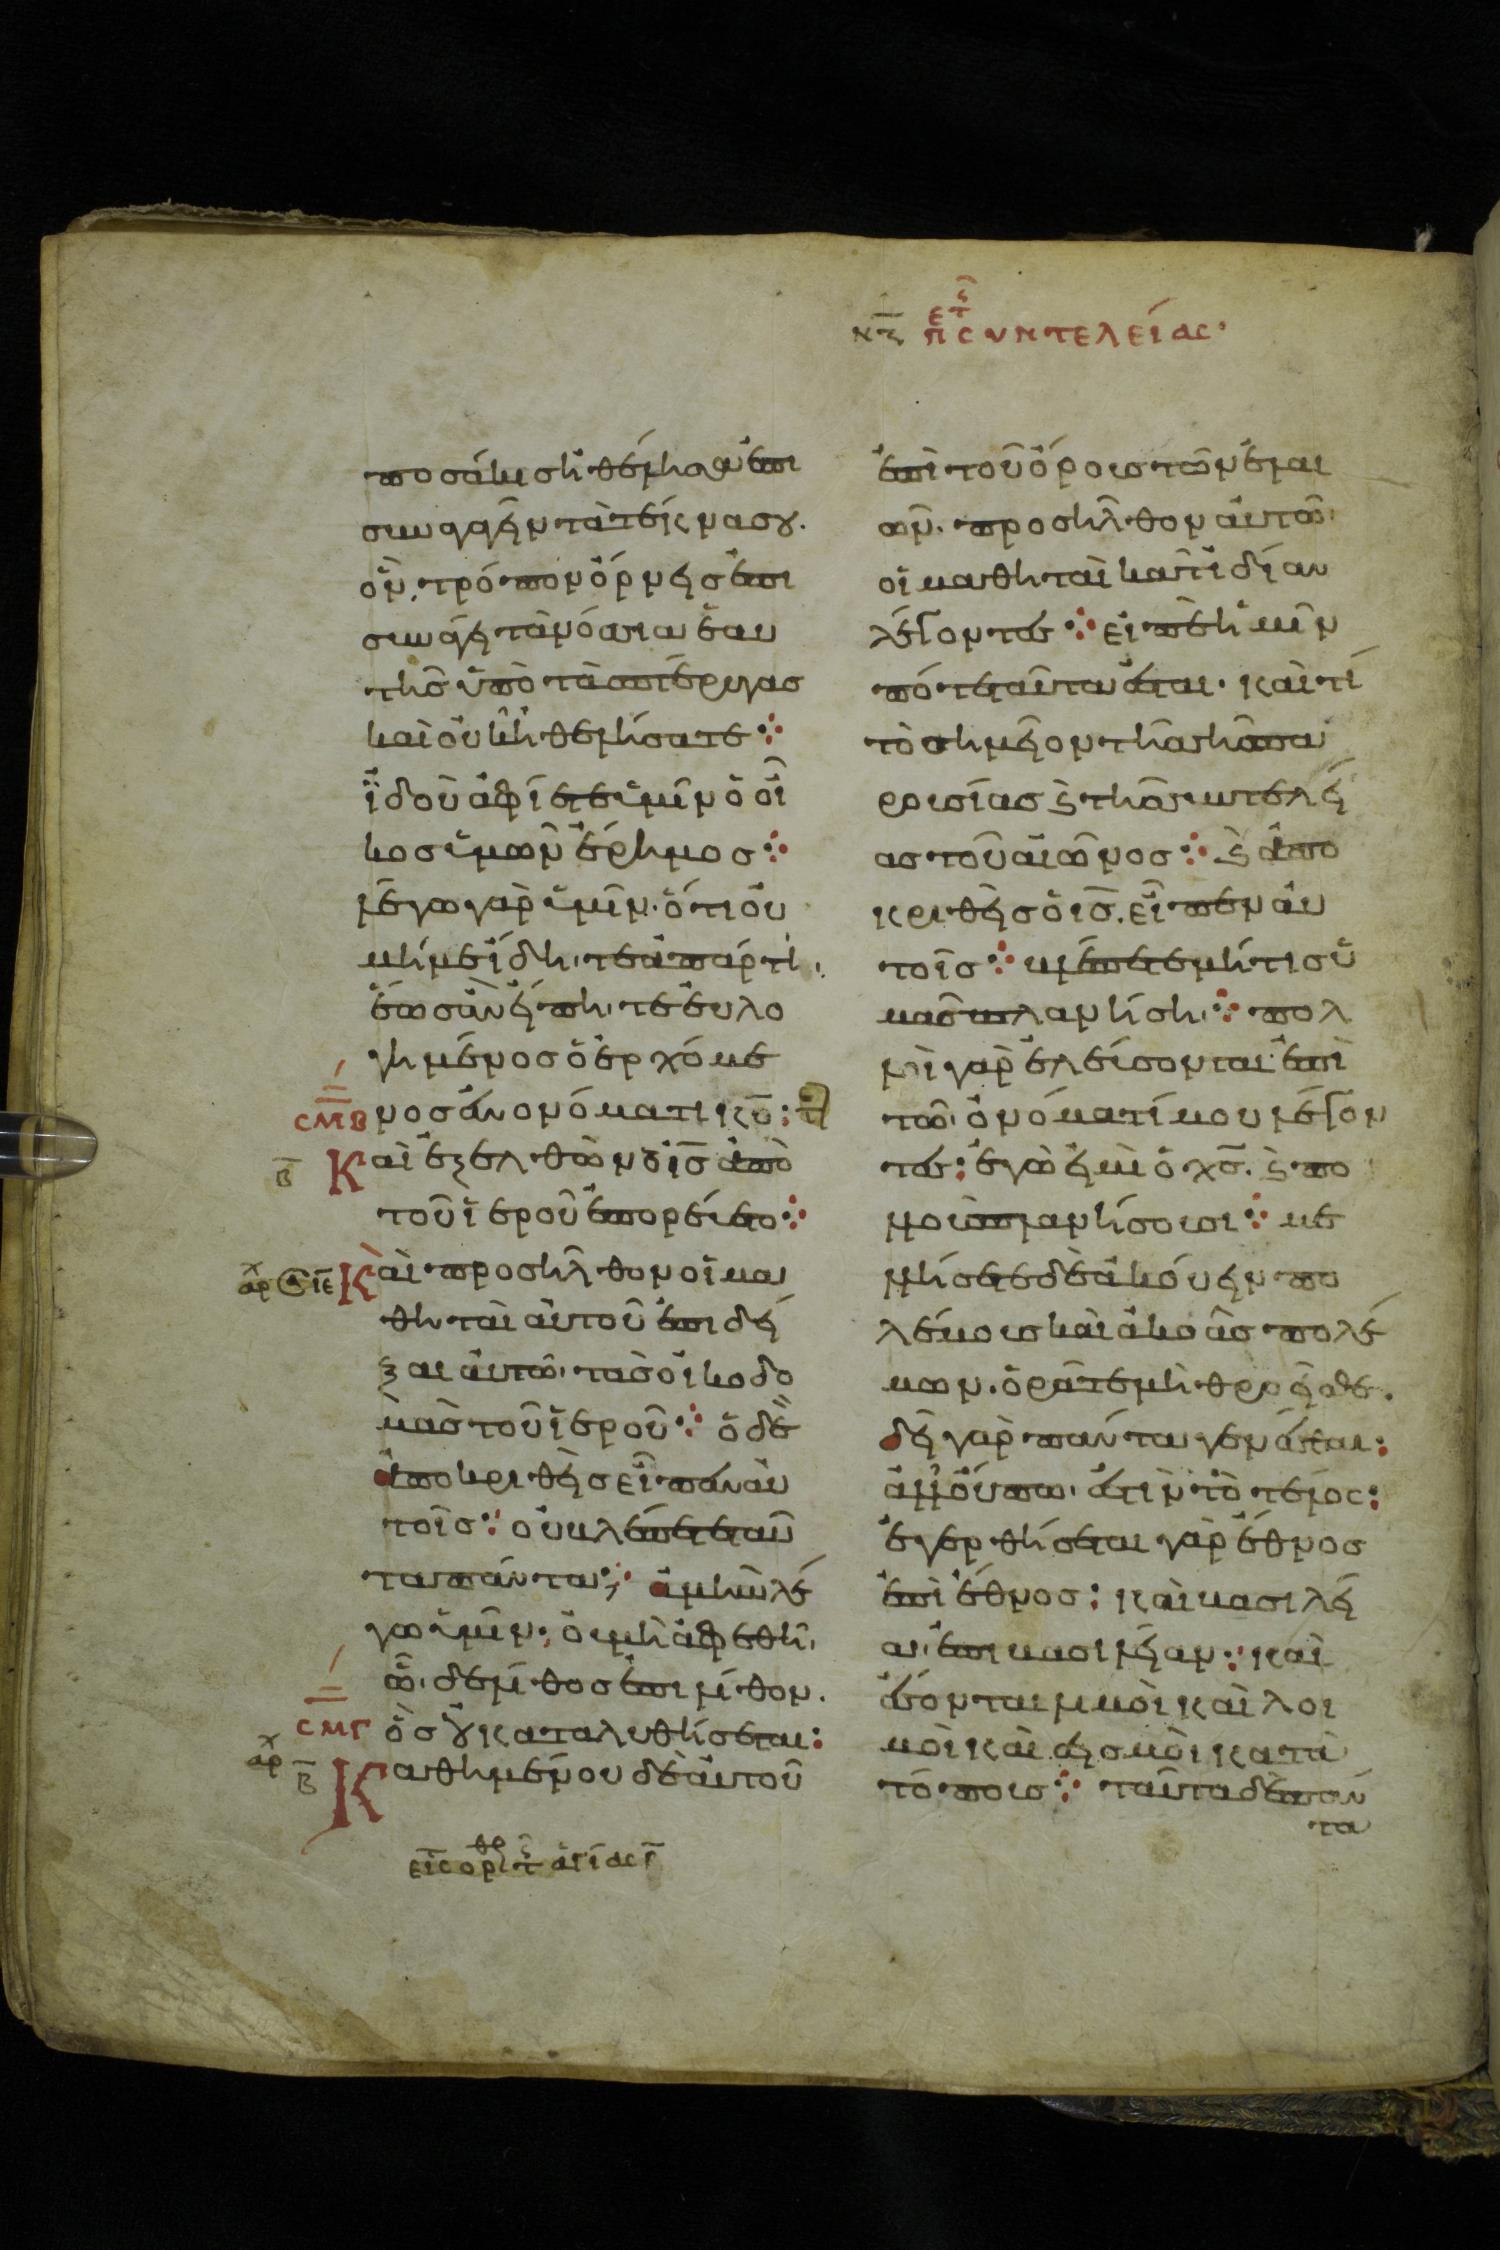 νζ πε τς συντελείας·
ποσάκις ἠθέλησα ἐπι
συναγαγεῖν τὰ τέκνα σου.
ὃν τρόπον ὄρνις ἐπι
συνάγει τὰ νόσσια ἑαυ
τῆς ὑπὸ τὰς πτέρυγας
καὶ οὐκ ἠθελήσατε
ἰδοὺ ἀφίεται ὑμῖν ὁ οἶ
κος ὑμῶν ἔρημος
λέγω γὰρ ὑμῖν· ὅτι οὐ
μή με ἴδητε ἀπάρτι,
ἕως ἂν εἴπητε εὐλο
γημένος ὁ ἐρχόμε
σμβ νος ἐν ὀνόματι κυ:
β Καὶ ἐξελθὼν ὁ ις ἀπὸ
τοῦ ἱεροῦ ἐπορεύετο
αρχ ιε Καὶ προσῆλθον οἱ μα
θηταὶ αὐτοῦ ἐπιδεῖ
ξαι αὐτῶ τὰς οἰκοδο
μὰς τοῦ ἱεροῦ ὁ δὲ
ἀποκριθεὶς εἶπεν αὐ
τοῖς οὐ βλέπετε ταῦ
τα πάντα; ἀμὴν λέ
γω ὑμῖν, οὐ μὴ ἀφεθῆ
ὧδε λίθος ἐπι λίθον.
σμγ ὃς οὐ καταλυθήσεται:
αρχ β Καθημένου δὲ αὐτοῦ
ἐπὶ τοῦ ὄρους τῶν ἐλαι
ῶν. προσῆλθον αὐτῶ
οἱ μαθηταὶ κατἰδίαν
λέγοντες εἰπὲ ἡμῖν
πότε ταῦτα ἔσται· καὶ τί
τὸ σημεῖον τῆς σῆς πα
ρουσίας καὶ τῆς συντελεί
ας τοῦ αἰῶνος καὶ ἀπο
κριθεὶς ὁ ις. εἶπεν αὐ
τοῖς βλέπετε μή τις ὑ
μᾶς πλανήση πολ
λοὶ γὰρ ἐλεύσονται ἐπὶ
τῶ ὀνόματί μου λέγον
τες: ἐγὼ εἰμὶ ὁ χς. καὶ πο
λλοὺς πλανήσουσι με
λλήσετε δὲ ἀκούειν πο
λέμους καὶ ἀκοὰς πολέ
μων. ὁρᾶτε μὴ θροεῖσθε.
δεῖ γὰρ πάντα γενέσθαι:
ἀλλοὔπω ἐστὶν τὸ τέλος:
ἐγερθήσεται γὰρ ἔθνος
ἐπὶ ἔθνος: καὶ βασιλεί
α ἐπι βασιλείαν καὶ
ἔσονται λιμοὶ καὶ λοι
μοὶ καὶ σεισμοὶ κατὰ
τόπους ταῦτα δὲ πάν
τα